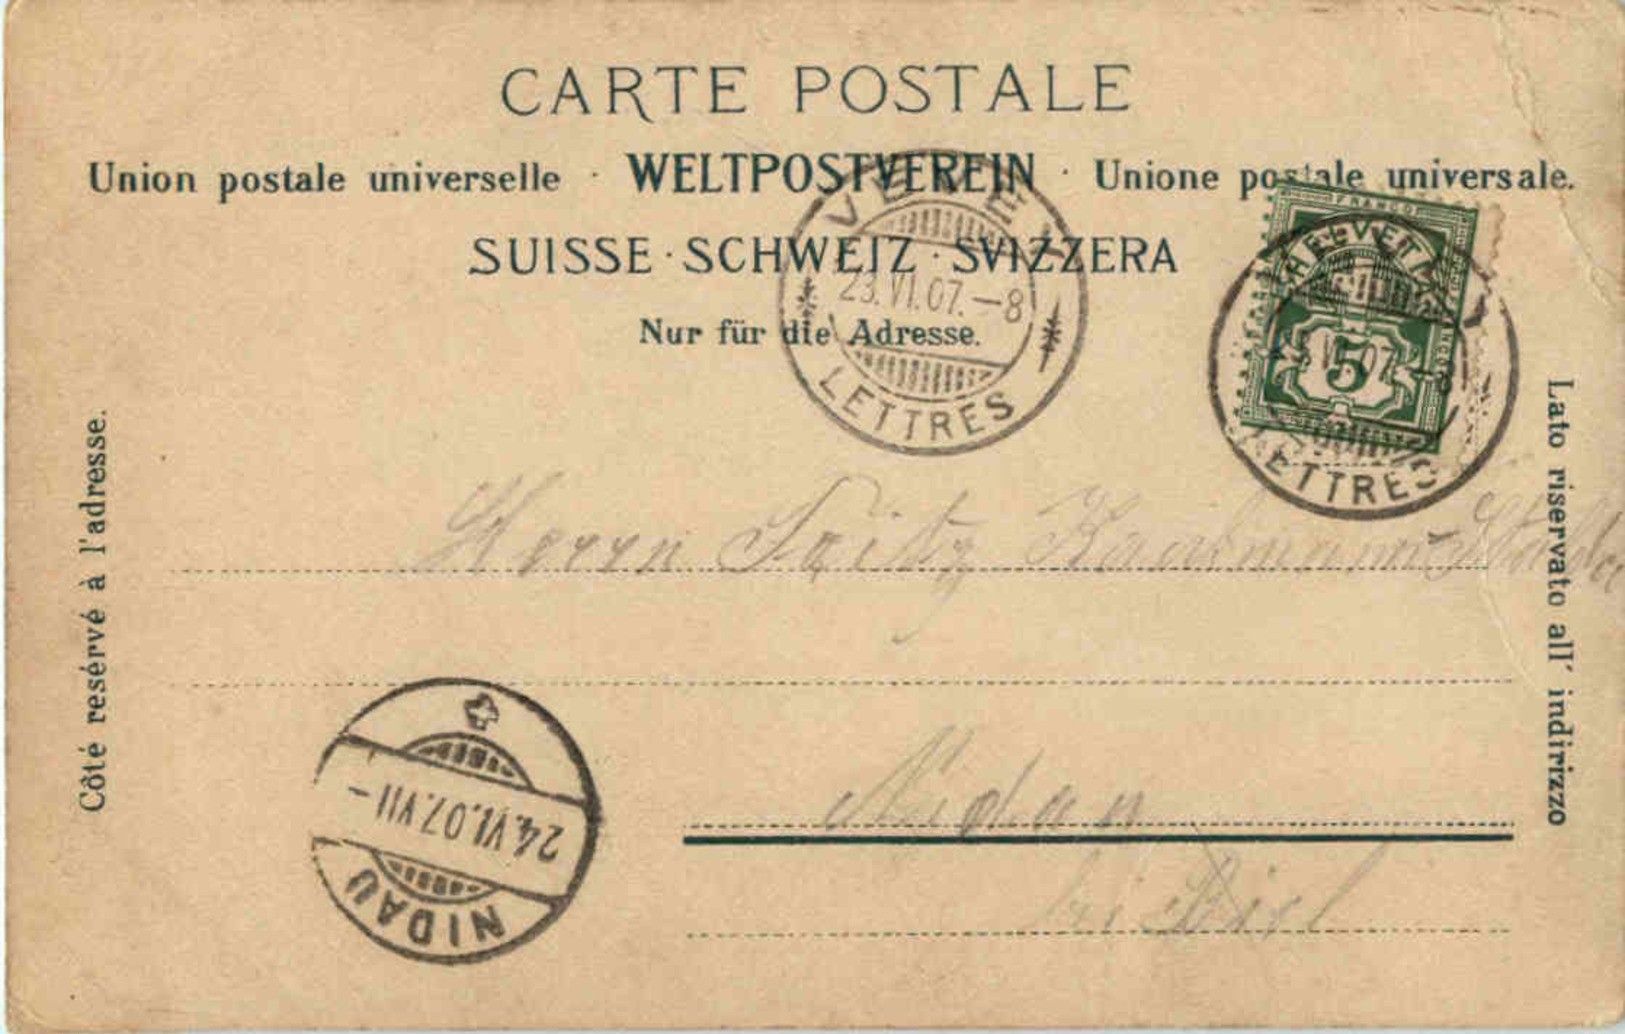 CARTE POSTALE
Union postale universelle · WELTPOSTVEREIN · Unione postale universale.
SUISSE · SCHWEIZ · SVIZZERA
Nur für die Adresse.
VEVEY
23.VI.07.–8
LETTRES
FRANCO
HELVETIA
5
VI.07.–8
LETTRES
Côté resérvé à l'adresse.
Lato riservato all' indirizzo
Herrn Fritz
Nidau
bei Biel
24.VI.07.VII–
NIDAU